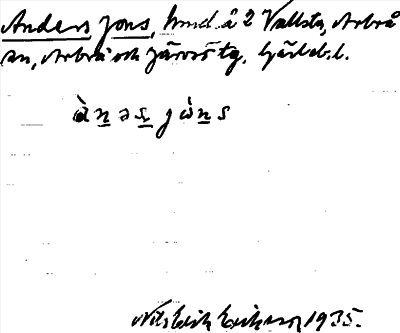 Anders Jons, hmd å 2 Vallsta, Arbrå
sn, Arbrå och Järvsö tg, Gävleb. l.
à n ə s j ò n s
Nils Erik Eriksson 1935.